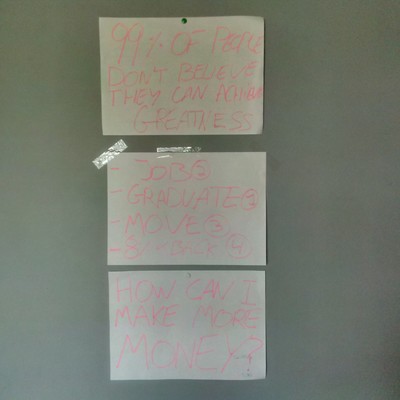 99% OF PEOPLE
DON'T BELIEVE
THEY CAN ACHIEVE
GREATNESS
- JOB ②
- GRADUATE ①
- MOVE ③
BACK ④
HOW CAN I
MAKE MORE
MONEY?